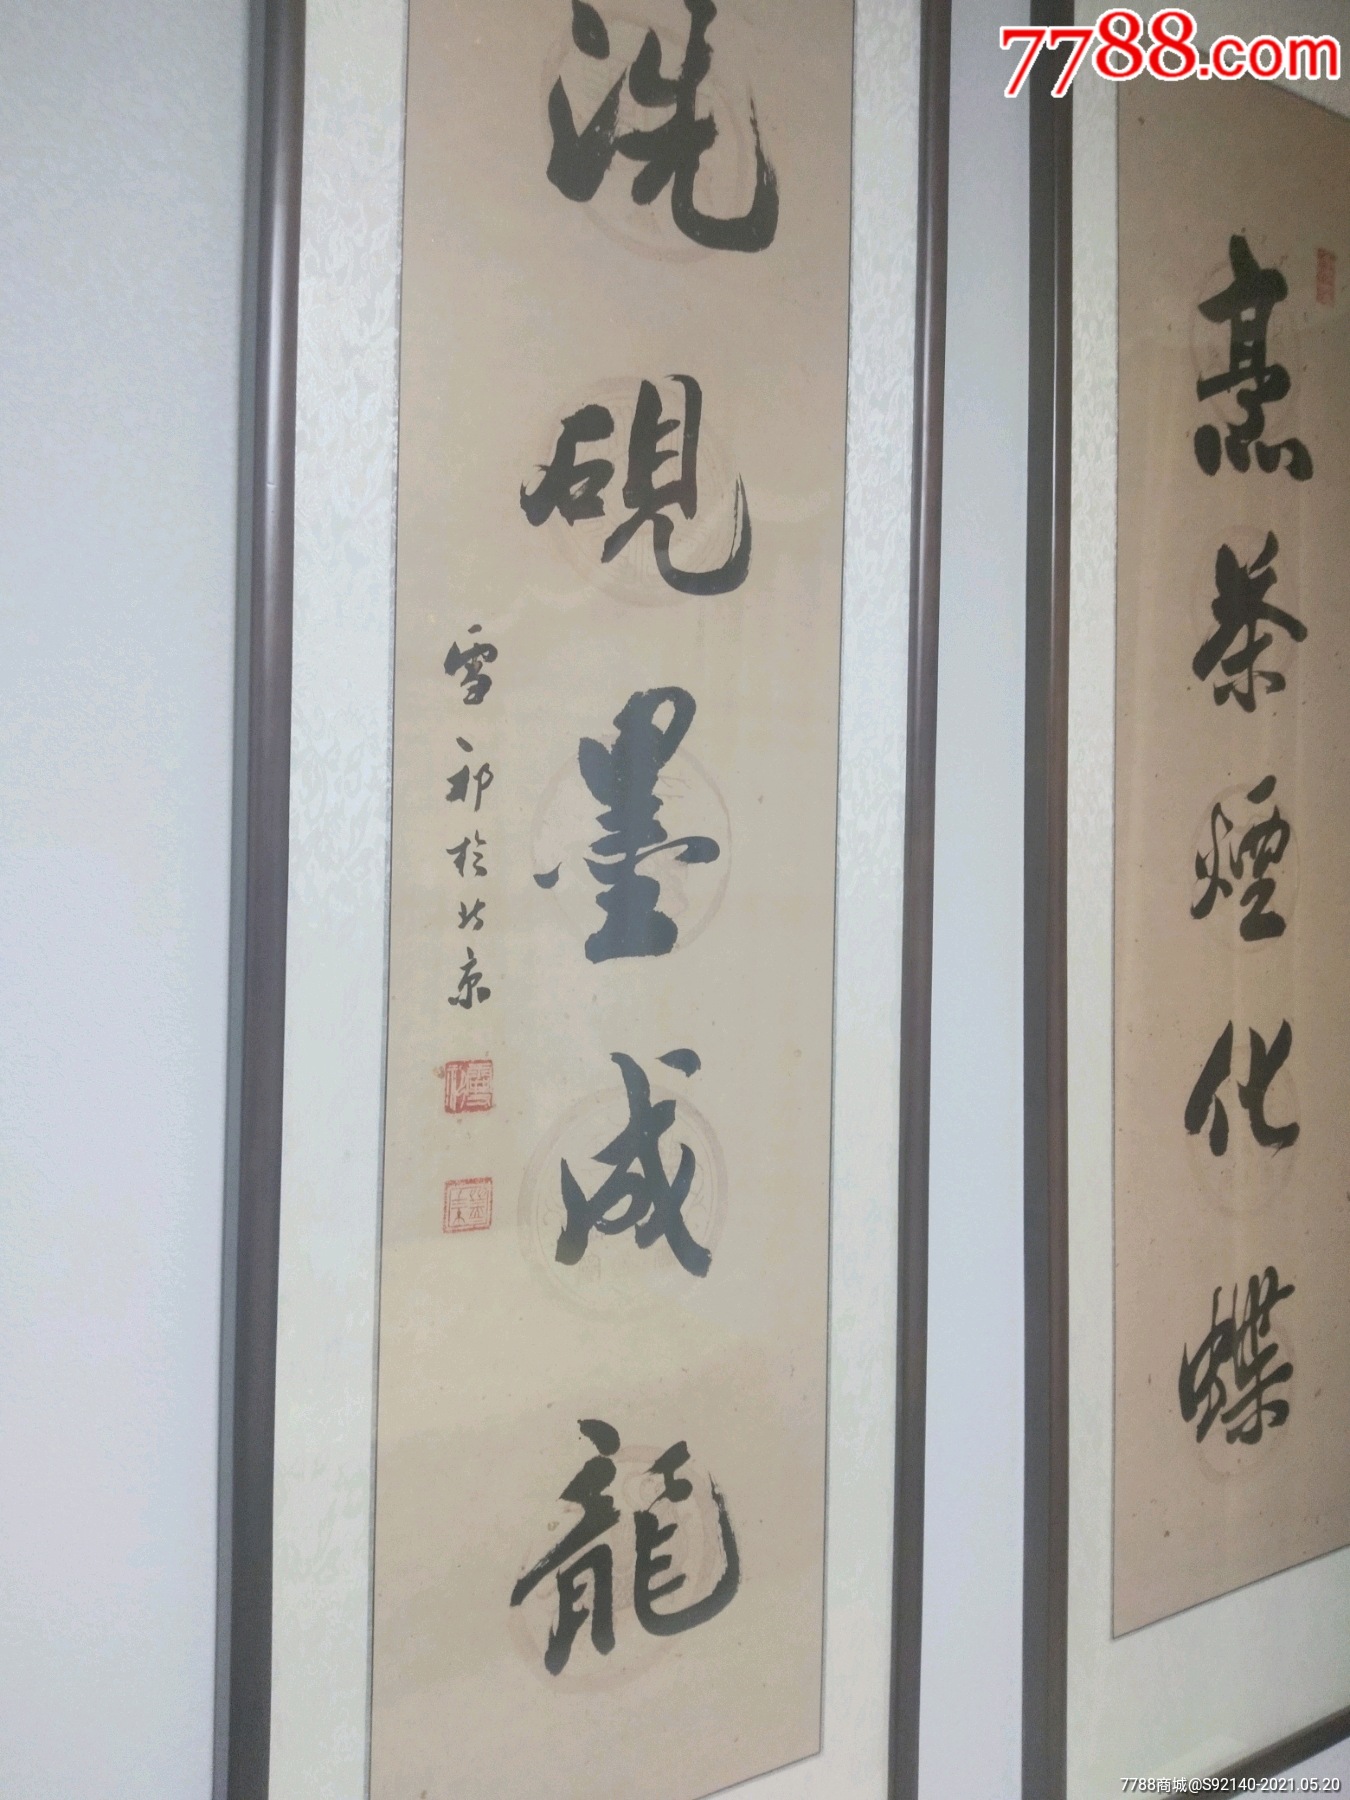 7788.com
烹茶煙化蝶
洗硯墨成龍
雪祁於北京
7788商城@S92140-2021.05.20